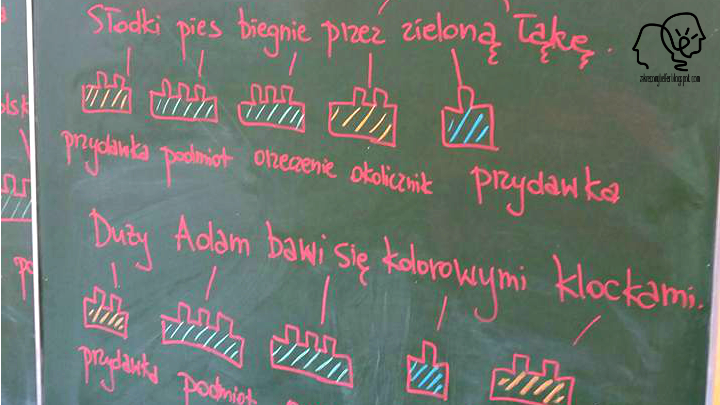 Słodki pies biegnie przez zieloną łąkę.
przydawka podmiot orzeczenie okolicznik przydawka
Duży Adam bawi się kolorowymi klockami.
przydawka podmiot